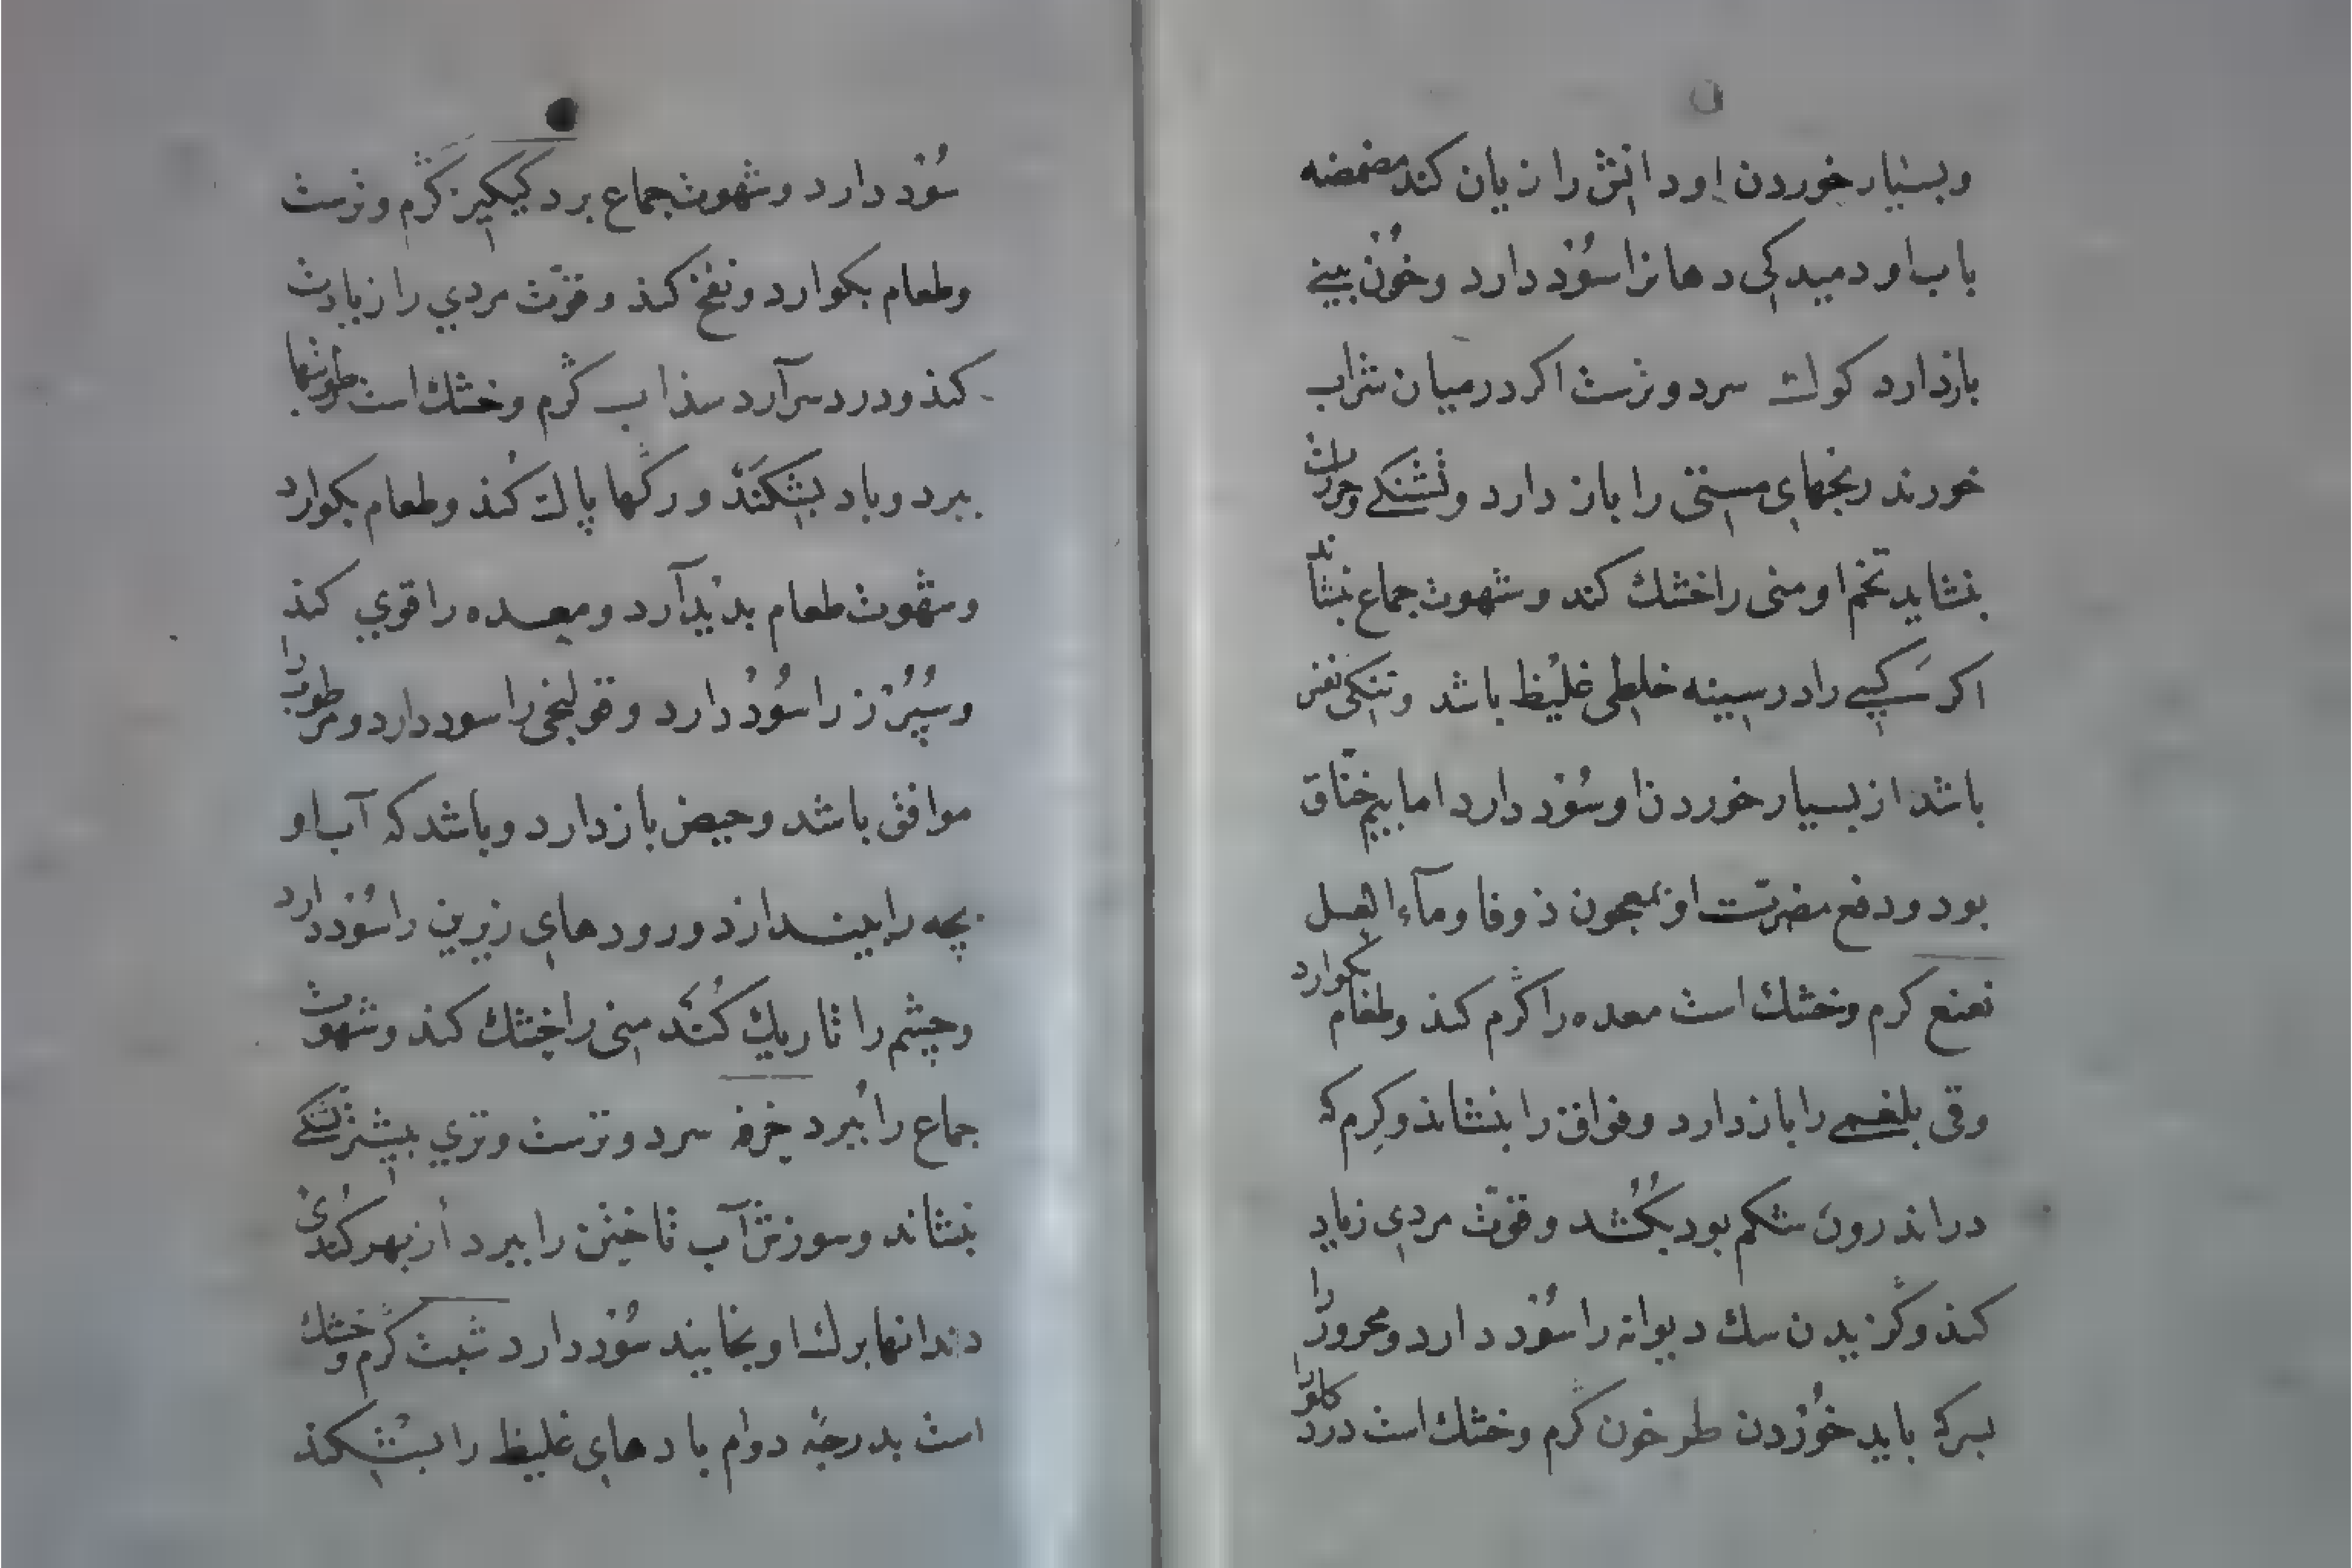 وبسیار خوردن او دانش را زیان کند مضمضه
باب او دمیدکی دهانرا سوذ دارد وخون بینی
بازدارد کوك سرد و ترست اکر درمیان شراب
خورند رنجهای مستی را باز دارد وتشنکی وحرارت
بنشاید تخم او منی را خشك کند وشهوت جماع بنشاند
اکر کسی را در سینه خلطی غلیظ باشد وتنکی نفس
باشد از بسیار خوردن او سوذ دارد اما بیم خناق
بود ودفع مضرت او بمعجون ذوفا ومآء العسل
نعنع کرم وخشك است معده را ڭرم کنذ وطعام بکوارد
وقی بلغمی را بازدارد وفواق را بنشاند وکرم که
در اندرون شکم بود بکشد وقوت مردی زیاد
کنذ وڭزیدن سك دیوانه را سوذ دارد ومحرور را
بسرکه باید خوردن طرخون ڭرم وخشك است درد کلو را
سوذ دارد وشهوت جماع برد کیکیز ڭرم وترست
وطعام بکوارد ونفخ کنذ وقوت مردي را زیادت
کنذ ودرد سر آرد سذاب ڭرم وخشك است رطوبتها
ببرد وباد بشکند ورڭها پاك کنذ وطعام بکوارد
وشهوت طعام بدیذ آرد ومعده را قوي کنذ
وسپرز را سوذ دارد وقولنجی را سود دارد ومرطوب را
موافق باشد وحیض بازدارد وباشد که آب او
بچه را بیندازد ورودهای زیرین را سوذ دارد
وچشم را تاریك کند منی را خشك کنذ وشهوت
جماع را ببرد خرفه سرد وترست وتري بیشتر تشنکی
بنشاند وسوزش آب تاختن را ببرد از بهر کندی
دندانها برك او بخایند سوذ دارد شبت ڭرم وخشك
است بدرجه دوام بادهای غلیظ را بشکنذ